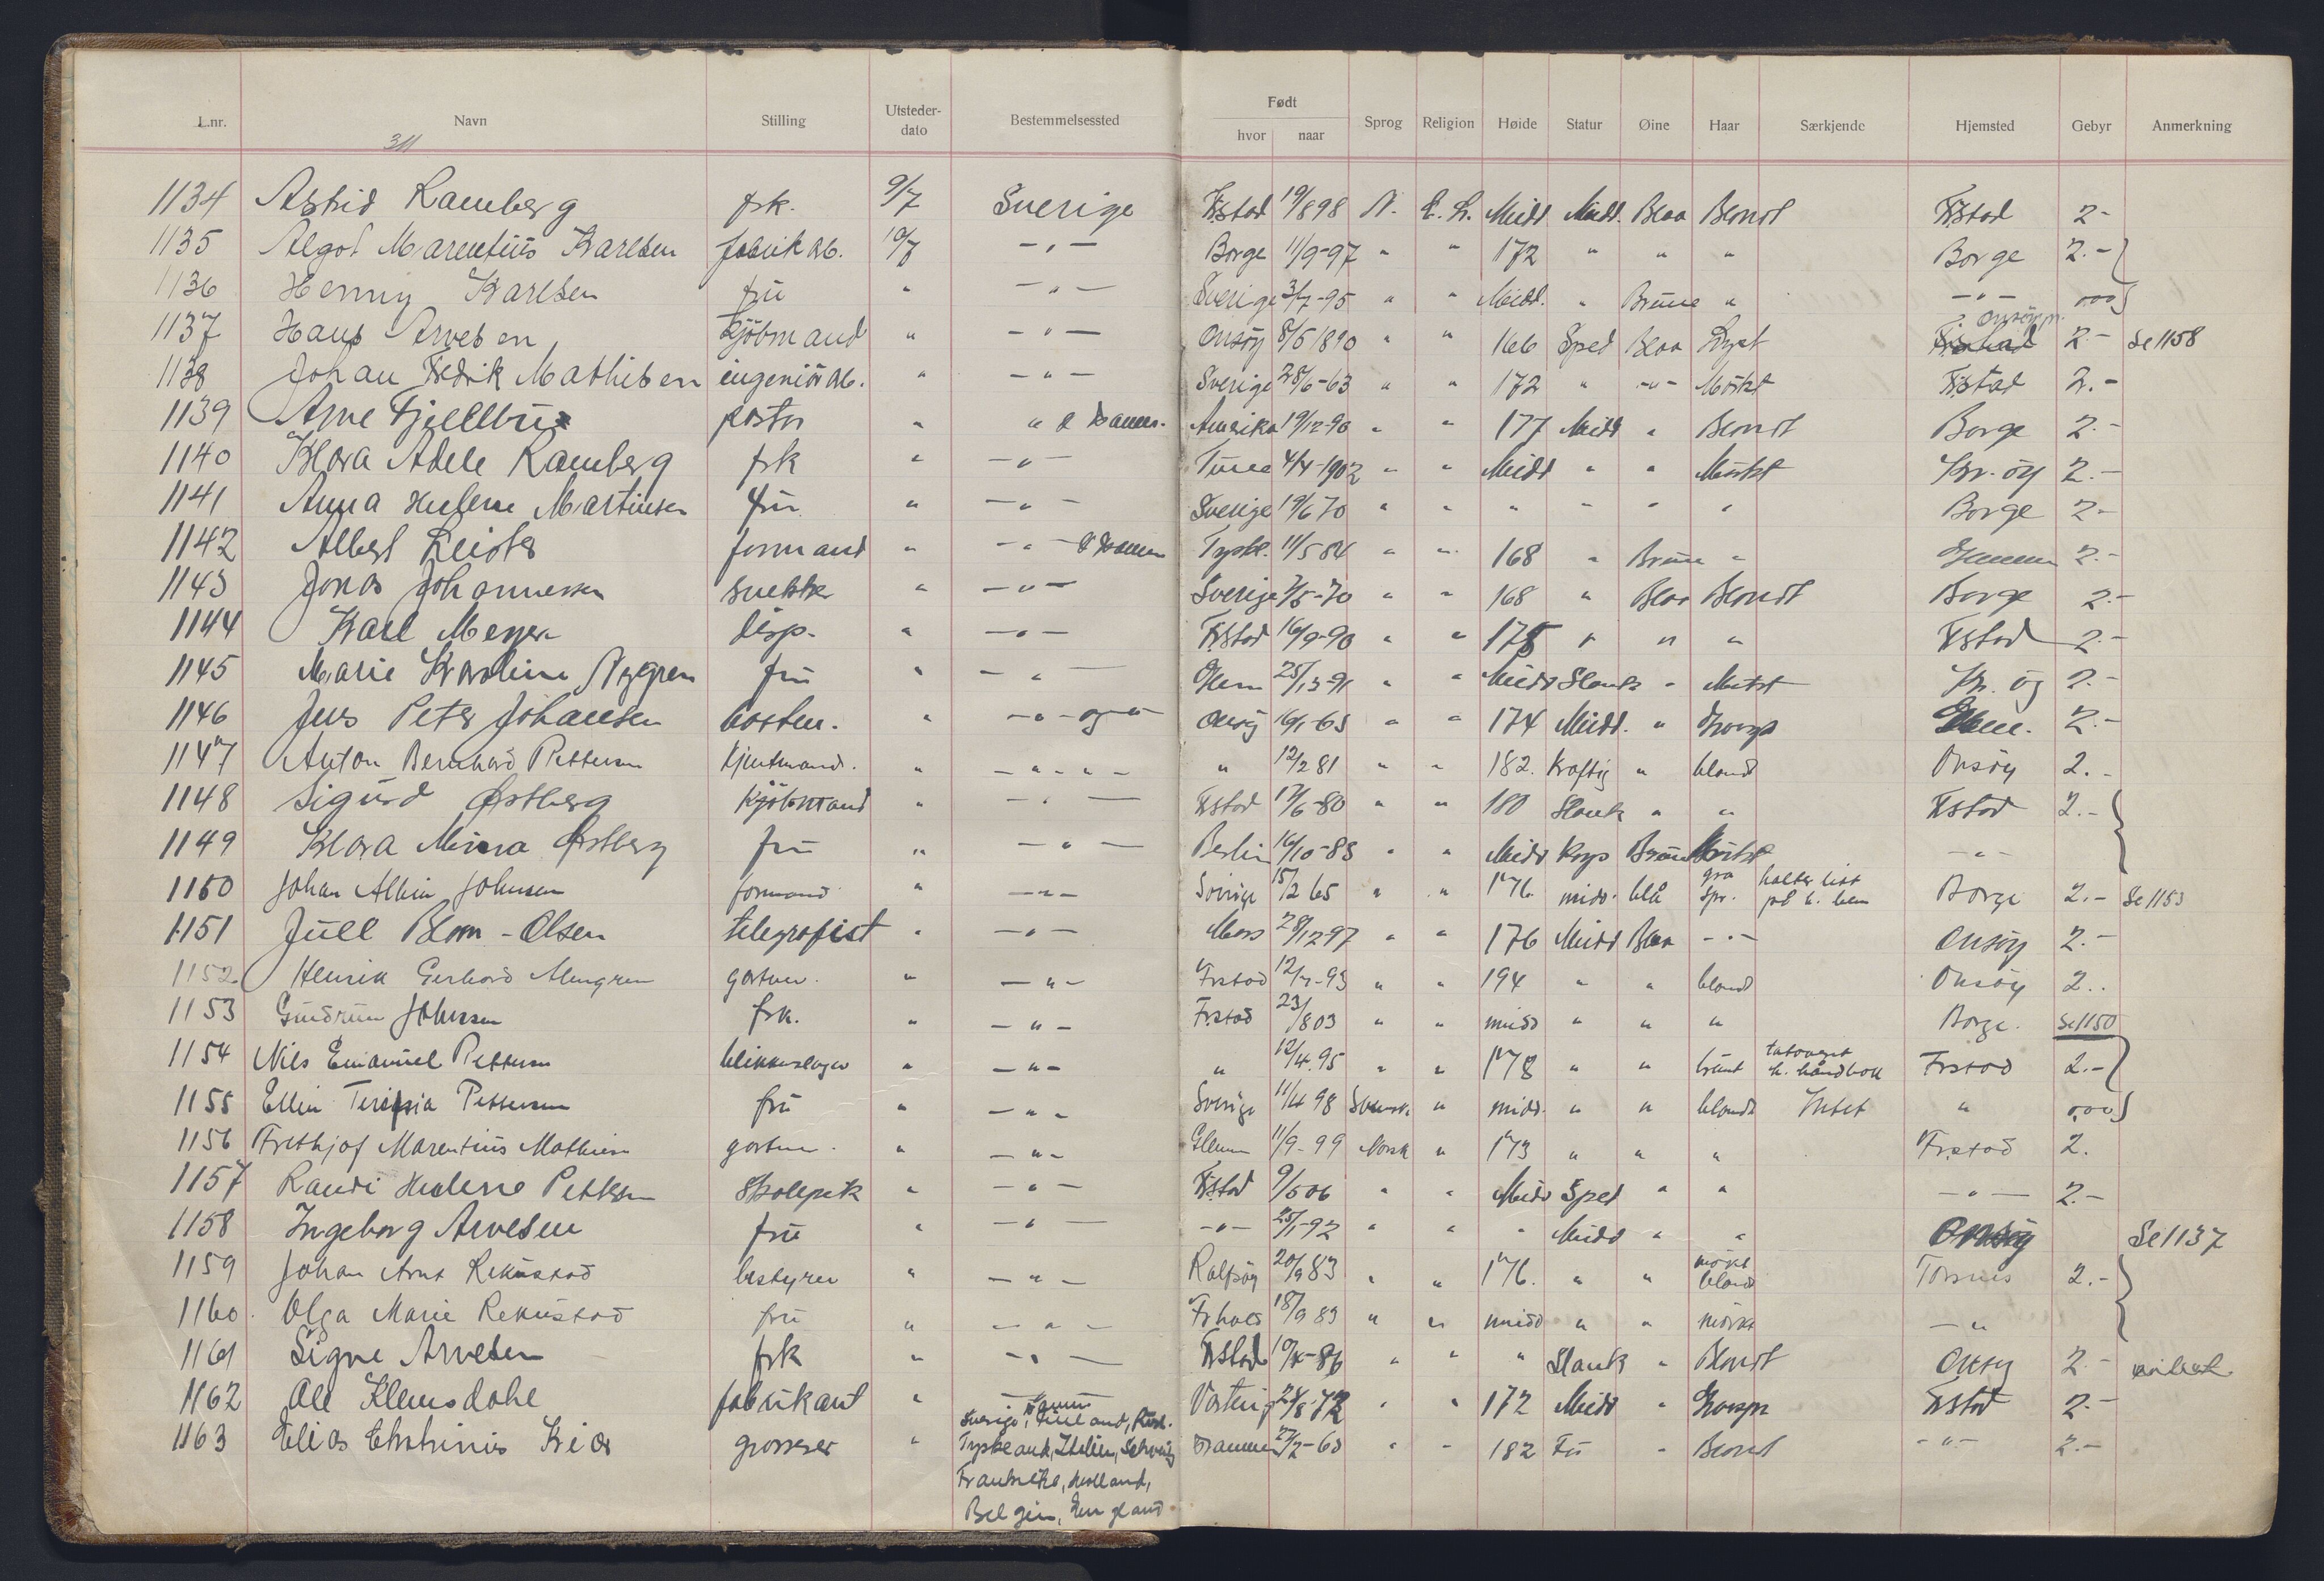 Født
L.nr. Navn Stilling Utsteder-dato Bestemmelsessted hvor naar Sprog Religion Høide Statur Øine Haar Særkjende Hjemsted Gebyr Anmerkning
1134 Astrid Ramberg frk. 9/7 Sverige Fr.stad 19/8 98 N. E. L. Midd Midd. Blaa Blondt Fr.stad 2-
1135 Algot Marentius Karlsen fabrikarb. 10/7 -"- Borge 11/9-97 " " 172 " " " Borge 2.-
1136 Henny Karlsen fru " -"- Sverige 3/7-95 " " Midd. " Brune " -"- 000
1137 Hans Arvesen Kjöbmand " -"- Onsöy 8/5 1890 " " 166 Sped Blaa Lyst Onsöy 2- Se 1158
1138 Johan Fredrik Mathisen ingeniörarb. " -"- Sverige 28/6-63 " " 172 " -"- Mörkt Fr.stad 2.-
1139 Arne Fjellbu pastor " " & Danm. Amerika 19/12-90 " " 177 Midd " Blondt Borge 2.-
1140 Klara Adele Ramberg frk " -"- Tune 4/4-1902 " " Midd " " Mörkt Kr.öy 2.-
1141 Anna Helene Martinsen fru " -"- Sverige 19/6 70 " " " " " " Borge 2-
1142 Albert formand " -"- & Danm Tyskl. 11/5 84 " " 168 " Brune " Glemm 2.-
1143 Jonas Johannessen snekker " -"- Sverige 7/5-70 " " 168 " Blaa Blondt Borge 2.-
1144 Karl Meyer disp. " -"- Fr.stad 16/9-90 " " 175 " " " Fr.stad 2.-
1145 Marie Karoline Nygren fru " -"- Glem 25/ -91 " " Midd Slank " Mörkt Kr.öy 2.-
1146 Jens Peter Johansen " -"- Onsöy 16/1-63 " " 174 Midd. " Glem. 2.-
1147 Anton Bernhard Pettersen Kjentmand. " -"-"- " 12/2 81 " " 182. Kraftig " blond Onsöy 2.-
1148 Sigurd Østberg Kjöbmand " -"- Fr.stad 17/6-80 " " 180 Slank " " Fr.stad 2.-
1149 Klara Minna Østberg fru " -"- Berlin 16/10-83 " " Midd Brune Mörkt -"-
1150 Johan Albin Johnsen formand " -"- Sverige 15/2 65 " " 176 midd. blå grå spr. halter litt på h. ben Borge 2.- Se 1153
1151 Juell Blom-Olsen telegrafist " -"- Moss 28/12 97 " " 176 Midd Blaa -"- Onsöy 2.-
1152 Henrik Gerhard Almgren gartner. " -"- Frstad 12/7-93 " " 194 " " blond Onsöy 2..
1153 Gudrun Johnsen frk. " -"- Frstad 23/8 03 " " midd " " " Borge. Se 1150
1154 Nils Emanuel Pettersen blikkenslager " -"- " 12/4.95 " " 178 " " brunt tatovert h. håndbak Frstad 2.-
1155 Ellen Teresia Pettersen fru " -"- Sverige 11/4 98 Svensk " midd. " " blondt Intet " 0,00
1156 Frithjof Marentius Mathisen gartner. " -"- Glemm 11/9-99 Norsk " 173 " " " Frstad 2.
1157 Randi Helene Pettersen Skolepik " -"- Fr.stad 9/5 06 " " Midd Sped " " -"- 2.-
1158 Ingeborg Arvesen fru " -"- -"- 25/1-92 " " " Midd " " Onsöy Se 1137
1159 Johan Arnt Rekustad bestyrer " -"- Rolfsöy 20/9 83 " " 176. " " mörkt blond Torsnes 2.-
1160. Olga Marie Rekustad fru " -"- Frhald 18/9 83 " " midd " " mörkt -"-
1161 Signe Arvesen frk " -"- Fr.stad 10/ -86 " " " Slank " Blondt Onsöy 2.-
1162 Ole Klemsdahl fabrikant " -"- 28/8-72 " " 172 Midd " Fr.stad 2.-
1163 Elias Kiær grosserer " Danm Sverige, Finland, Rusl. Drammen 27/2-63 " " 182 " Blond -"- 2.-
Tyskland, Italien, Schweiz
Frankrike, Holland,
Belgien, England